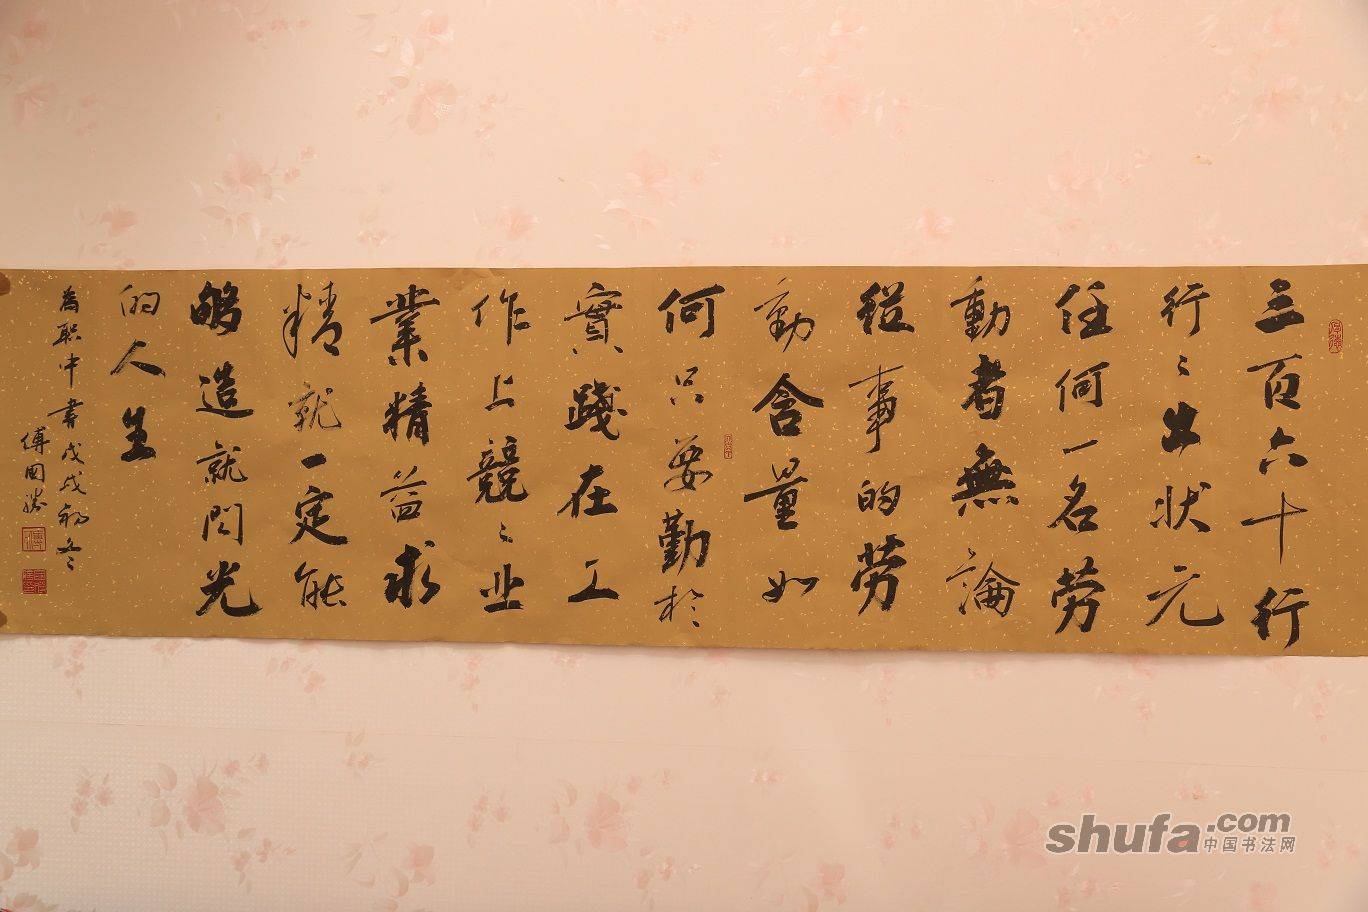 三百六十行
行〻出状元
任何一名劳
動者無論
從事的劳
動含量如
何只要勤於
實踐在工
作上競〻业
業精益求
精就一定能
够造就闪光
的人生
為职中書戊戌初冬
傅国勝
shufa.com
中国书法网